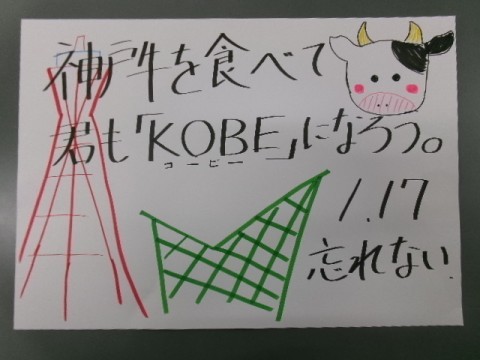 神戸牛を食べて
君も「KOBE」になろう。
コービー
1.17
忘れない.